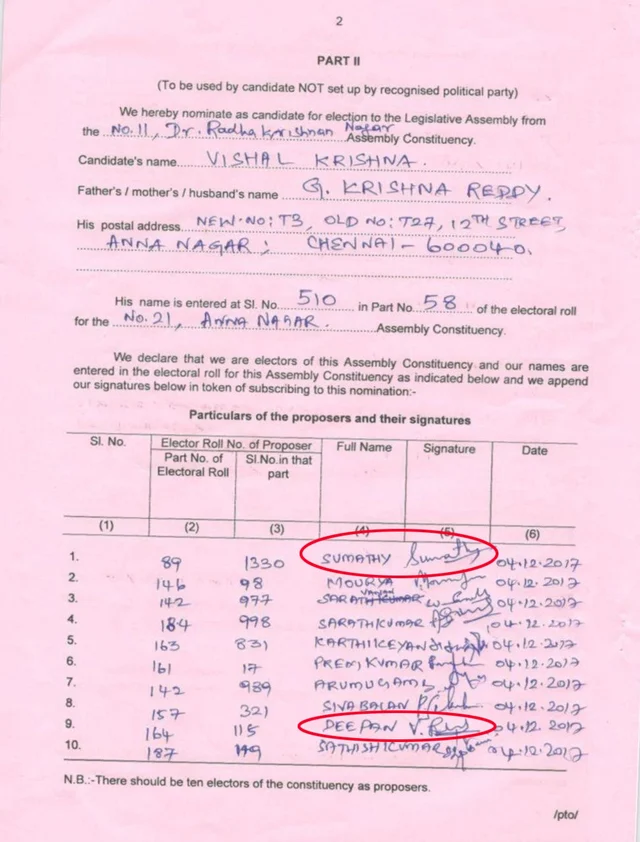 2
PART II
(To be used by candidate NOT set up by recognised political party)
We hereby nominate as candidate for election to the Legislative Assembly from
the No. 11, Dr. Radha Krishnan Nagar Assembly Constituency.
Candidate's name VISHAL KRISHNA.
Father's / mother's / husband's name G. KRISHNA REDDY.
His postal address NEW·NO: T3, OLD NO: T27, 12TH STREET,
ANNA NAGAR, CHENNAI - 600040.
His name is entered at Sl. No. 510 in Part No. 58 of the electoral roll
for the No. 21, ANNA NAGAR. Assembly Constituency.
We declare that we are electors of this Assembly Constituency and our names are
entered in the electoral roll for this Assembly Constituency as indicated below and we append
our signatures below in token of subscribing to this nomination:-
Particulars of the proposers and their signatures
Sl. No. Elector Roll No. of Proposer Full Name Signature Date
Part No. of Electoral Roll Sl.No.in that part
(1) (2) (3) (4) (5) (6)
1. 89 1330 SUMATHY Sumathy 04.12.2017
2. 146 98 MOURYA 04.12.2017
3. 142 977 SARATHKUMAR 04.12.2017
4. 184 998 SARATHKUMAR 04.12.2017
5. 163 831 KARTHIKEYAN 04.12.2017
6. 161 17 PREM KUMAR 04.12.2017
7. 142 989 ARUMUGAM 04.12.2017
8. 157 321 SIVABALAN 04.12.2017
9. 164 115 DEEPAN V. 04.12.2017
10. 187 SATHISHKUMAR 04.12.2017
N.B.:-There should be ten electors of the constituency as proposers.
/pto/